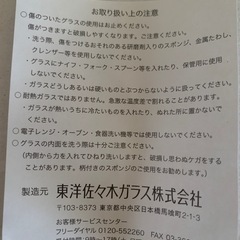 お取り扱い上の注意
○傷のついたグラスの使用はお止めください。
傷がつきますと破損しやすくなります。ご注意ください。
・洗う際、傷をつけるおそれのある研磨剤入りのスポンジ、金属たわし、
クレンザー等を使用しないでください。
・グラスにナイフ・フォーク・スプーン等を入れたり、保管用に使用
しないでください。
・ガラスどうしあるいは硬いものともぶつからないように扱ってください。
○耐熱ガラスではありません。急激な温度差で割れることがあります。
・ガラスが熱いうちに冷たいものを入れたり、ぬれた所に置かないで
ください。
○電子レンジ・オーブン・食器洗い機等では使用しないでください。
○グラスの内面を洗う際は十分ご注意ください。
(内側から力を入れてひねり洗いしますと、破損し思わぬケガをする
ことがあります。柄付きのスポンジをご使用ください。)
製造元 東洋佐々木ガラス株式会社
〒103-8373 東京都中央区日本橋馬喰町2-1-3
お客様サービスセンター
フリーダイヤル 0120-552260 FAX 03-